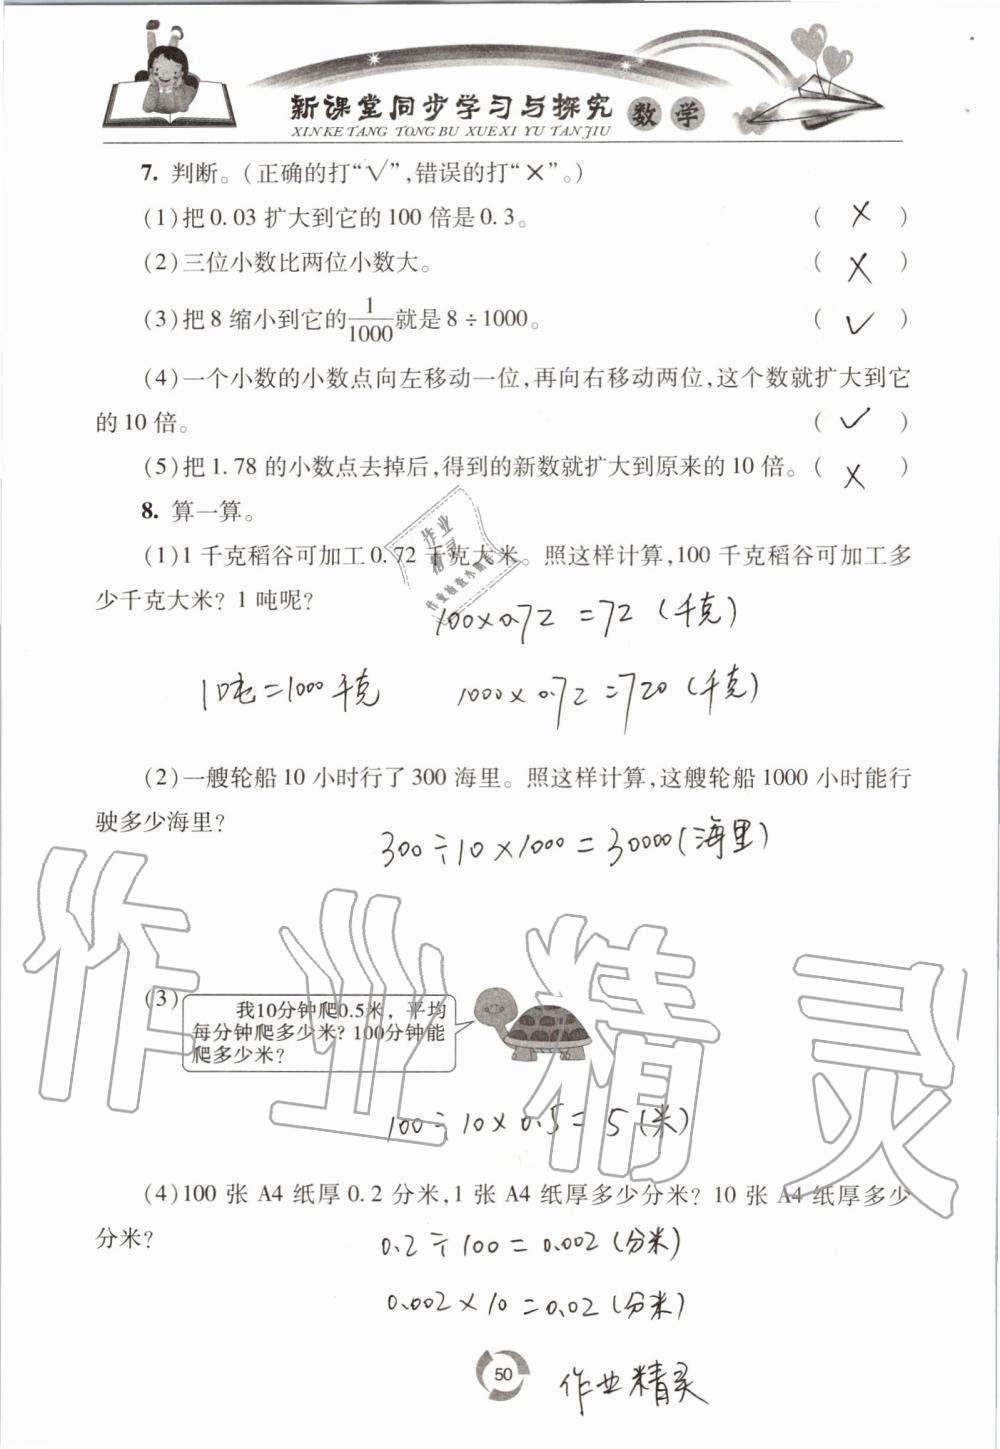 新课堂同步学习与探究 数学
XIN KE TANG TONG BU XUE XI YU TAN JIU
7. 判断。(正确的打“√”,错误的打“×”。)
(1)把0.03扩大到它的100倍是0.3。 ( × )
(2)三位小数比两位小数大。 ( × )
(3)把8缩小到它的1/1000就是8÷1000。 ( √ )
(4)一个小数的小数点向左移动一位,再向右移动两位,这个数就扩大到它
的10倍。 ( √ )
(5)把1.78的小数点去掉后,得到的新数就扩大到原来的10倍。( × )
8. 算一算。
(1)1千克稻谷可加工0.72千克大米。照这样计算,100千克稻谷可加工多
少千克大米?1吨呢?
100×0.72=72(千克)
1吨=1000千克 1000×0.72=720(千克)
(2)一艘轮船10小时行了300海里。照这样计算,这艘轮船1000小时能行
驶多少海里?
300÷10×1000=30000(海里)
(3) 我10分钟爬0.5米,平均
每分钟爬多少米?100分钟能
爬多少米?
100÷10×0.5=5(米)
(4)100张A4纸厚0.2分米,1张A4纸厚多少分米?10张A4纸厚多少
分米?
0.2÷100=0.002(分米)
0.002×10=0.02(分米)
50
作业精灵
作业精灵
作业精灵